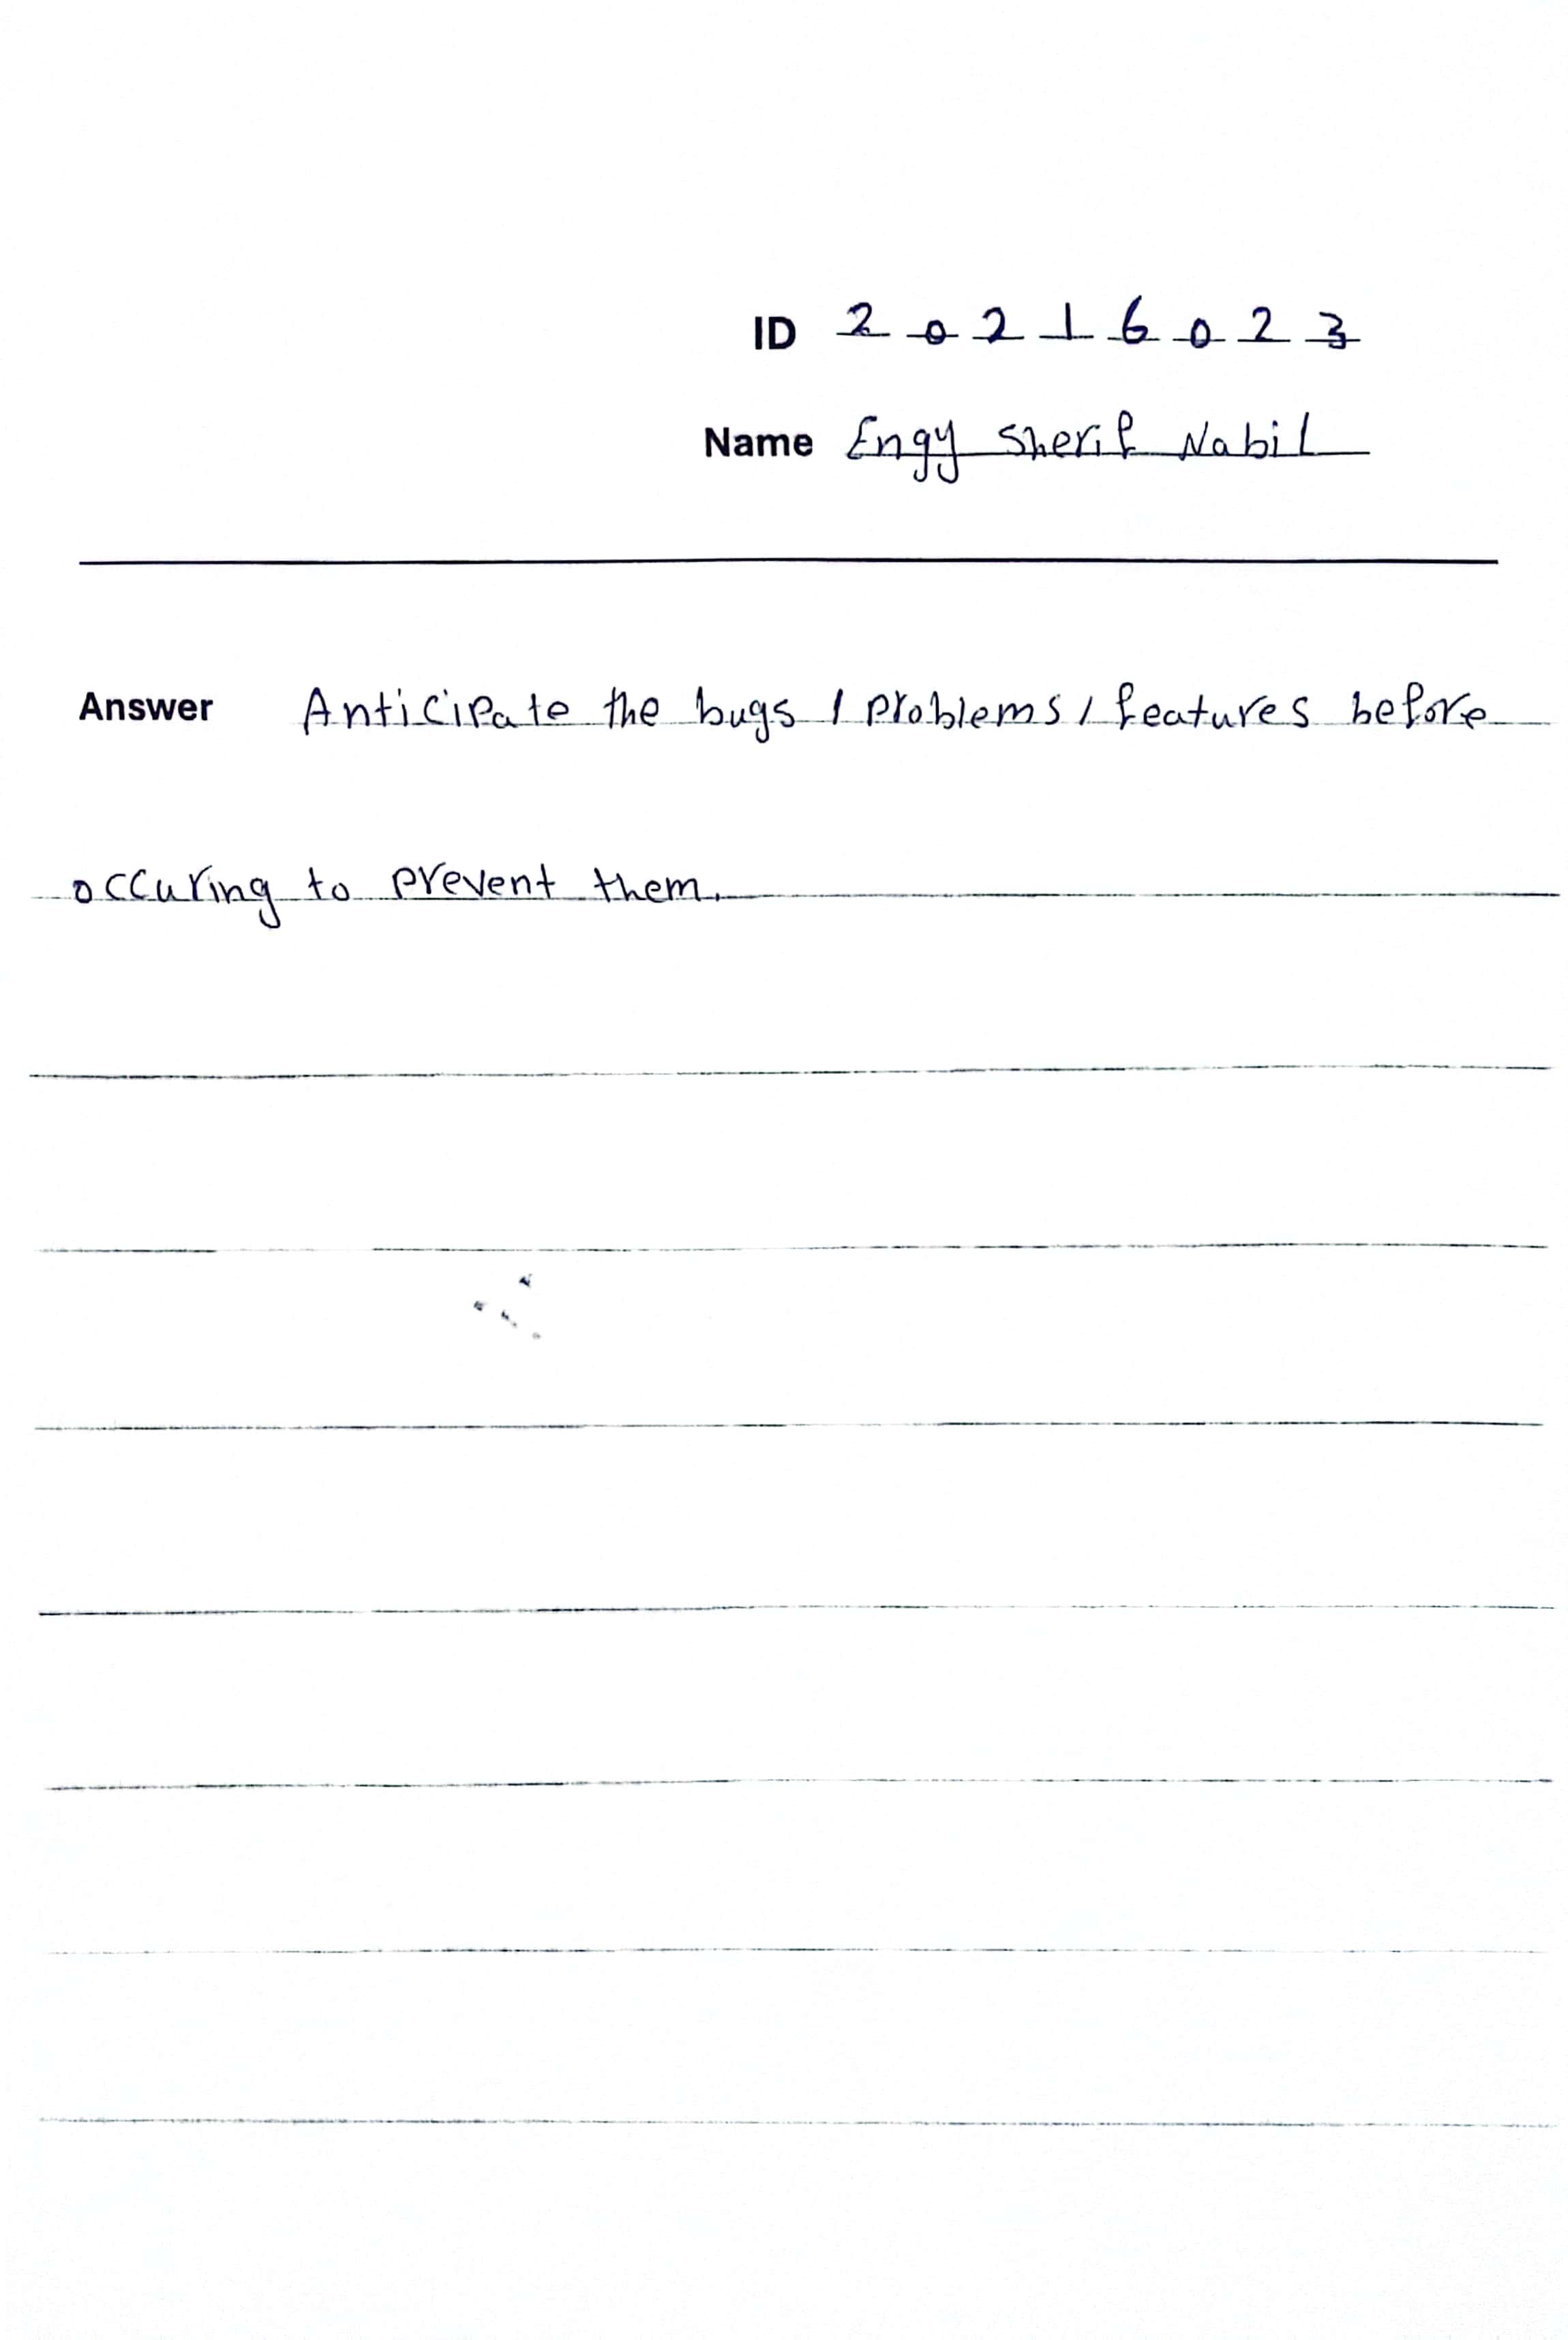 ID 2 0 2 1 6 0 2 3
Name Engy Sherif Nabil
Answer Anticipate the bugs / problems / features before
occuring to prevent them.